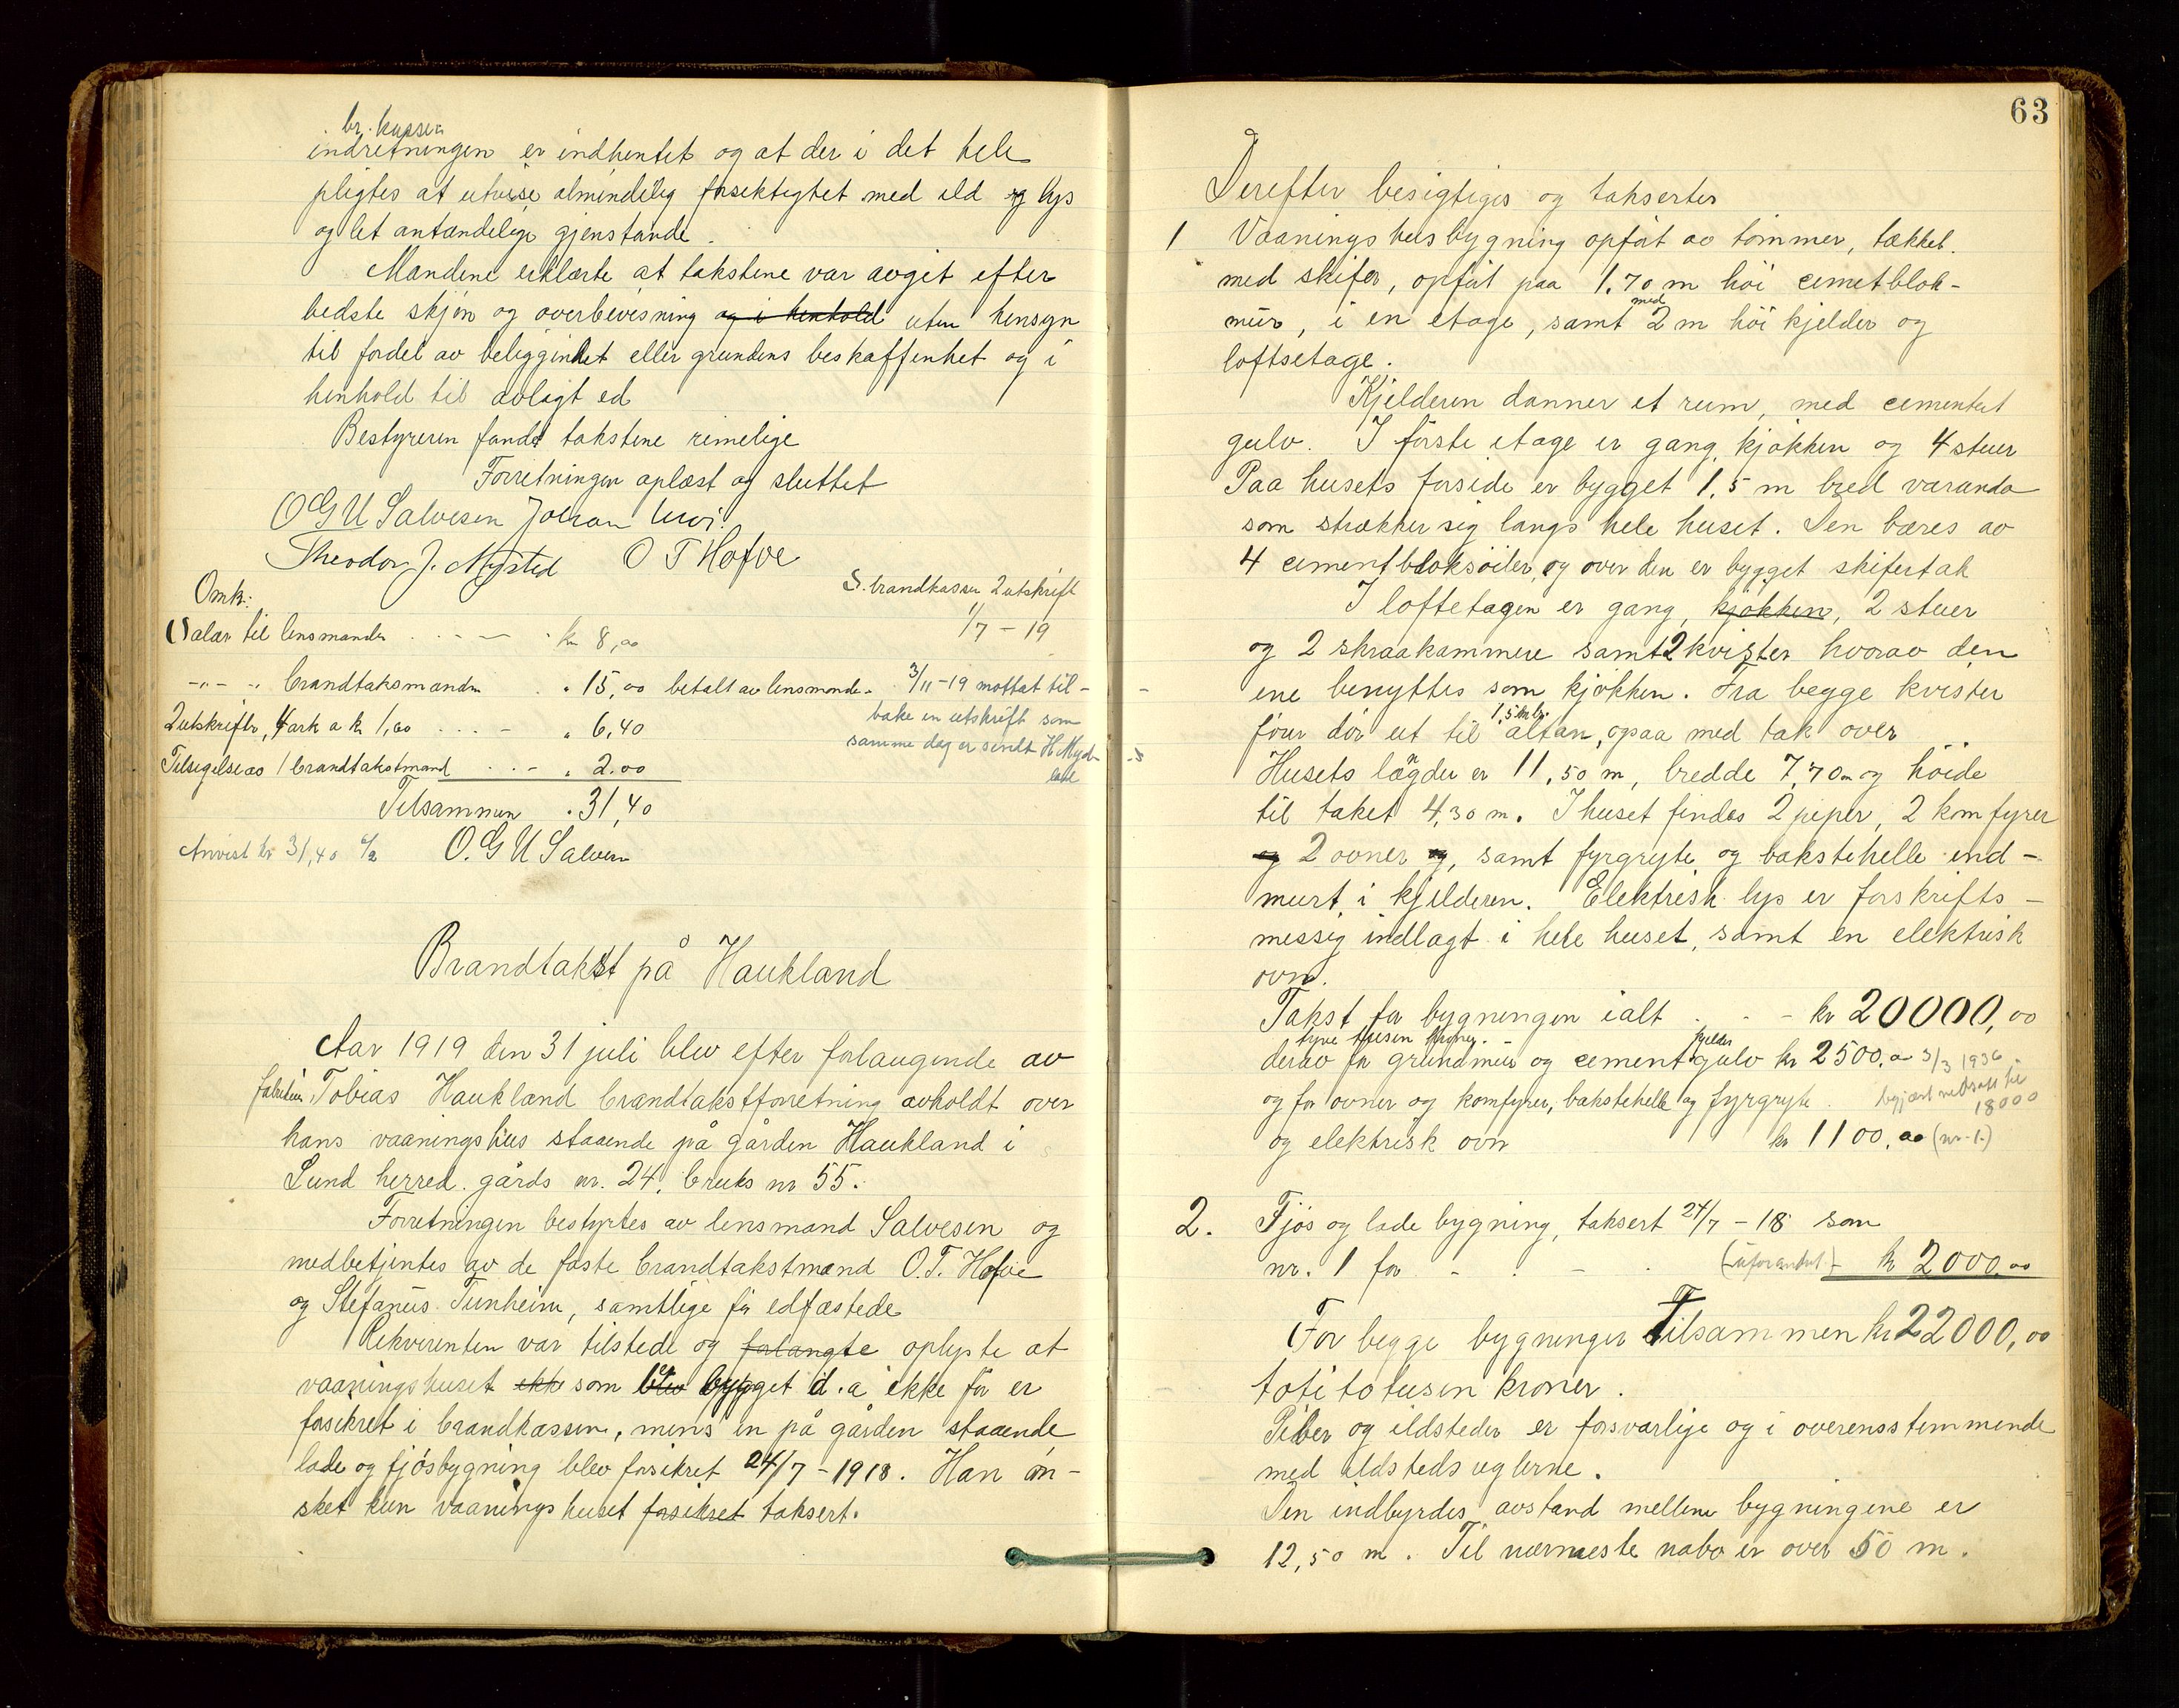 br. kassen
indretningen er indhentet og at der i det hele
pligtes at utvise almindelig forsiktighet med ild og lys
og let antændelige gjenstande.
Mændene erklærte at takstene var avgit efter
bedste skjøn og overbevisning og i henhold uten hensyn
til fordel av beliggenhet eller grundens beskaffenhet og i
henhold til avlagt ed
Bestyreren fandt takstene rimelige
Forretningen oplæst og sluttet
O G U Salvesen Johan
Theodor J. Mysted O T Hofve
Omk:
Salær til lensmanden kr 8,00
-"- " brandtaksmænden " 15,00 betalt av lensmanden
2 utskrifter, 4 ark a kr 1,60 " 6,40
Tilsigelse av 1 brandtakstmand " 2.00
Tilsammen " 31,40
Anvist kr 31,40 O. G U Salvesen
S. brandkassen 2 utskrift
1/7 - 19
3/11 - 19 mottat til-
bake en utskrift som
samme dag er sendt H. Myd-
land
Brandtakst på Haukland
Aar 1919 den 31 juli blev efter forlangende av
Tobias Haukland brandtakstforretning avholdt over
hans vaaningshus staaende på gården Haukland i
Lund herred. gårds nr. 24, bruks nr 55.
Forretningen bestyrtes av lensmand Salvesen og
medbetjentes av de faste brandtakstmænd O. T. Hofve
og Stefanus Tunheim, samtlige før edfæstede
Rekvirenten var tilstede og forlangte oplyste at
vaaningshuset ikke som blev bygget i d. a ikke før er
forsikret i brandkassen, mens en på gården staaende
lade og fjøsbygning blev forsikret 24/7 - 1918. Han øn-
sket kun vaaningshuset forsikret taksert.
63
Derefter besigtiges og taksertes
1 Vaaningshusbygning opført av tømmer, tækket
med skifer, opført paa 1.70 m høi cemetblok-
mur, i en etage, samt med 2 m høi kjelder og
loftsetage.
Kjelderen danner et rum, med cementert
gulv. I første etage er gang, kjøkken og 4 stuer
Paa husets forside er bygget 1.5 m bred varanda
som strækker sig langs hele huset. Den bæres av
4 cementbloksøiler, og over den er bygget skifertak
I loftetagen er gang, kjøkken, 2 stuer
og 2 skraakammere samt 2 kvister hvorav den
ene benyttes som kjøkken. Fra begge kvister
fører dør ut til 1,5 m br. altan, opaa med tak over
Husets længde er 11,50 m, bredde 7,70 m og høide
til taket 4,30 m. I huset findes 2 piper, 2 komfyrer
og 2 ovner og, samt fyrgryte og bakstehelle ind-
murt i kjelderen. Elektrisk lys er forskrifts-
messig indlagt i hele huset, samt en elektrisk
ovn.
Takst for bygningen ialt - kr 20000,00
tyve tusen kroner.
derav for grundmur og cement kjelder gulv kr 2500.00 3/3 1936
og for ovner og komfyrer, bakstehelle og fyrgryte begjært nedsatt til
18000
og elektrisk ovn kr 1100.00 (nr. 1.)
2. Fjøs og lade bygning, taksert 24/7 - 18 som
nr. 1 for (uforandret) - kr 2000.00
For begge bygninger Tilsammen kr 22000,00
toti totusen kroner.
Piber og ildsteder er forsvarlige og i overensstemmende
med ildstedsreglerne.
Den indbyrdes avstand mellem bygningene er
12,50 m. Til nærmeste nabo er over 50 m.